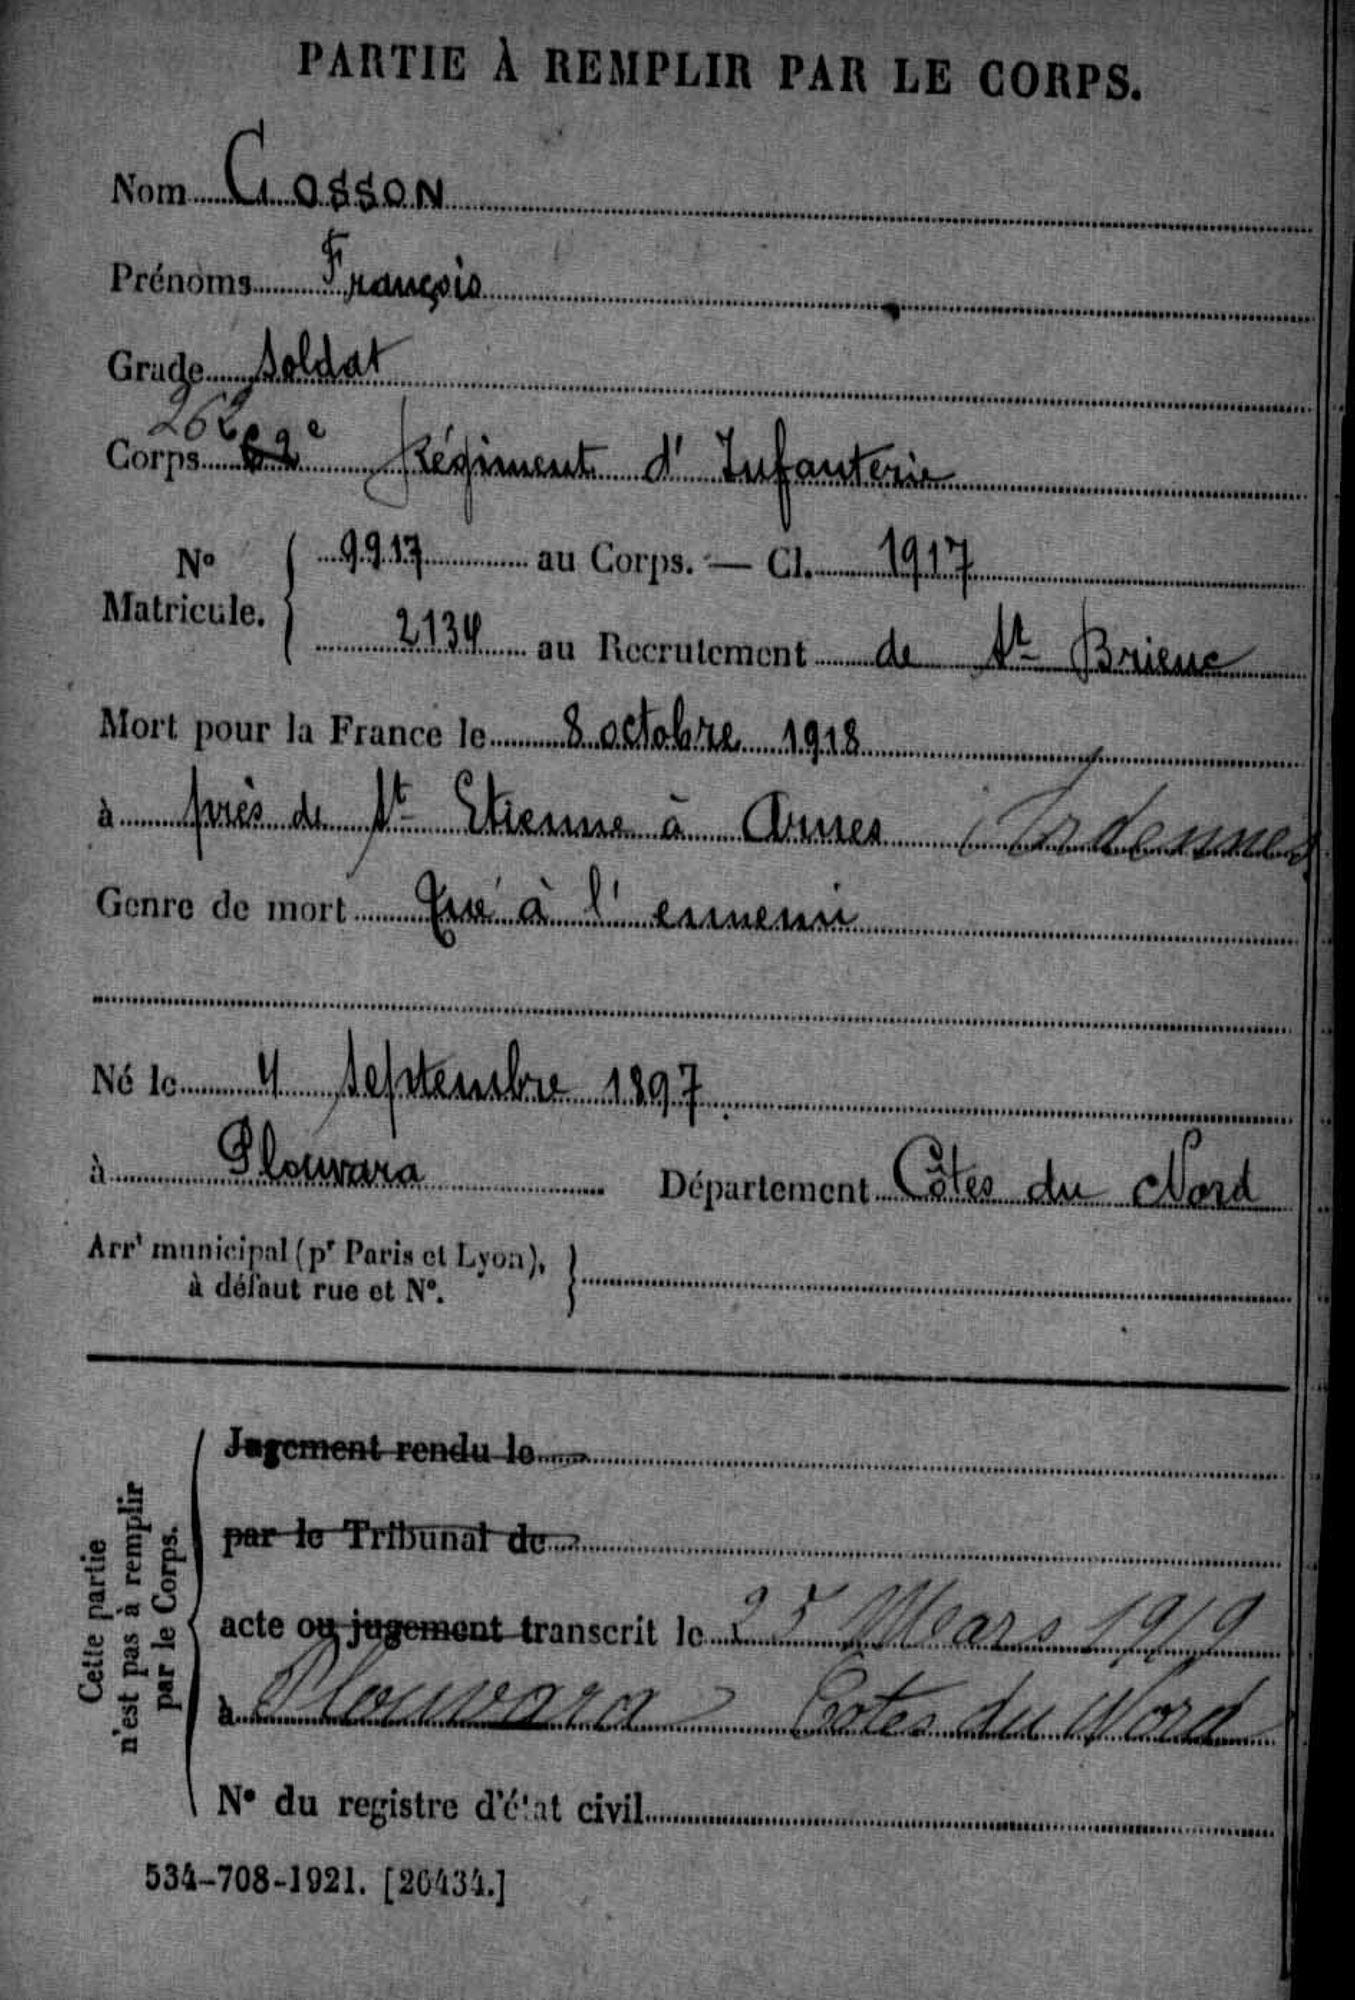 PARTIE À REMPLIR PAR LE CORPS.
Nom Cosson
Prénoms François
Grade Soldat
262
Corps 62e Régiment d'Infanterie
No Matricule. 9917 au Corps. — Cl. 1917
2134 au Recrutement de St Brieuc
Mort pour la France le 8 octobre 1918
à près de St Etienne à Arnes Ardennes
Genre de mort Tué à l'ennemi
Né le 4 Septembre 1897
à Plouvara Département Côtes du Nord
Arrt municipal (pr Paris et Lyon),
à défaut rue et No.
Cette partie
n'est pas à remplir
par le Corps.
Jugement rendu le
par le Tribunal de
acte ou jugement transcrit le 25 Mars 1919
à Plouvara Cotes du Nord
No du registre d'état civil
534-708-1921. [26434.]